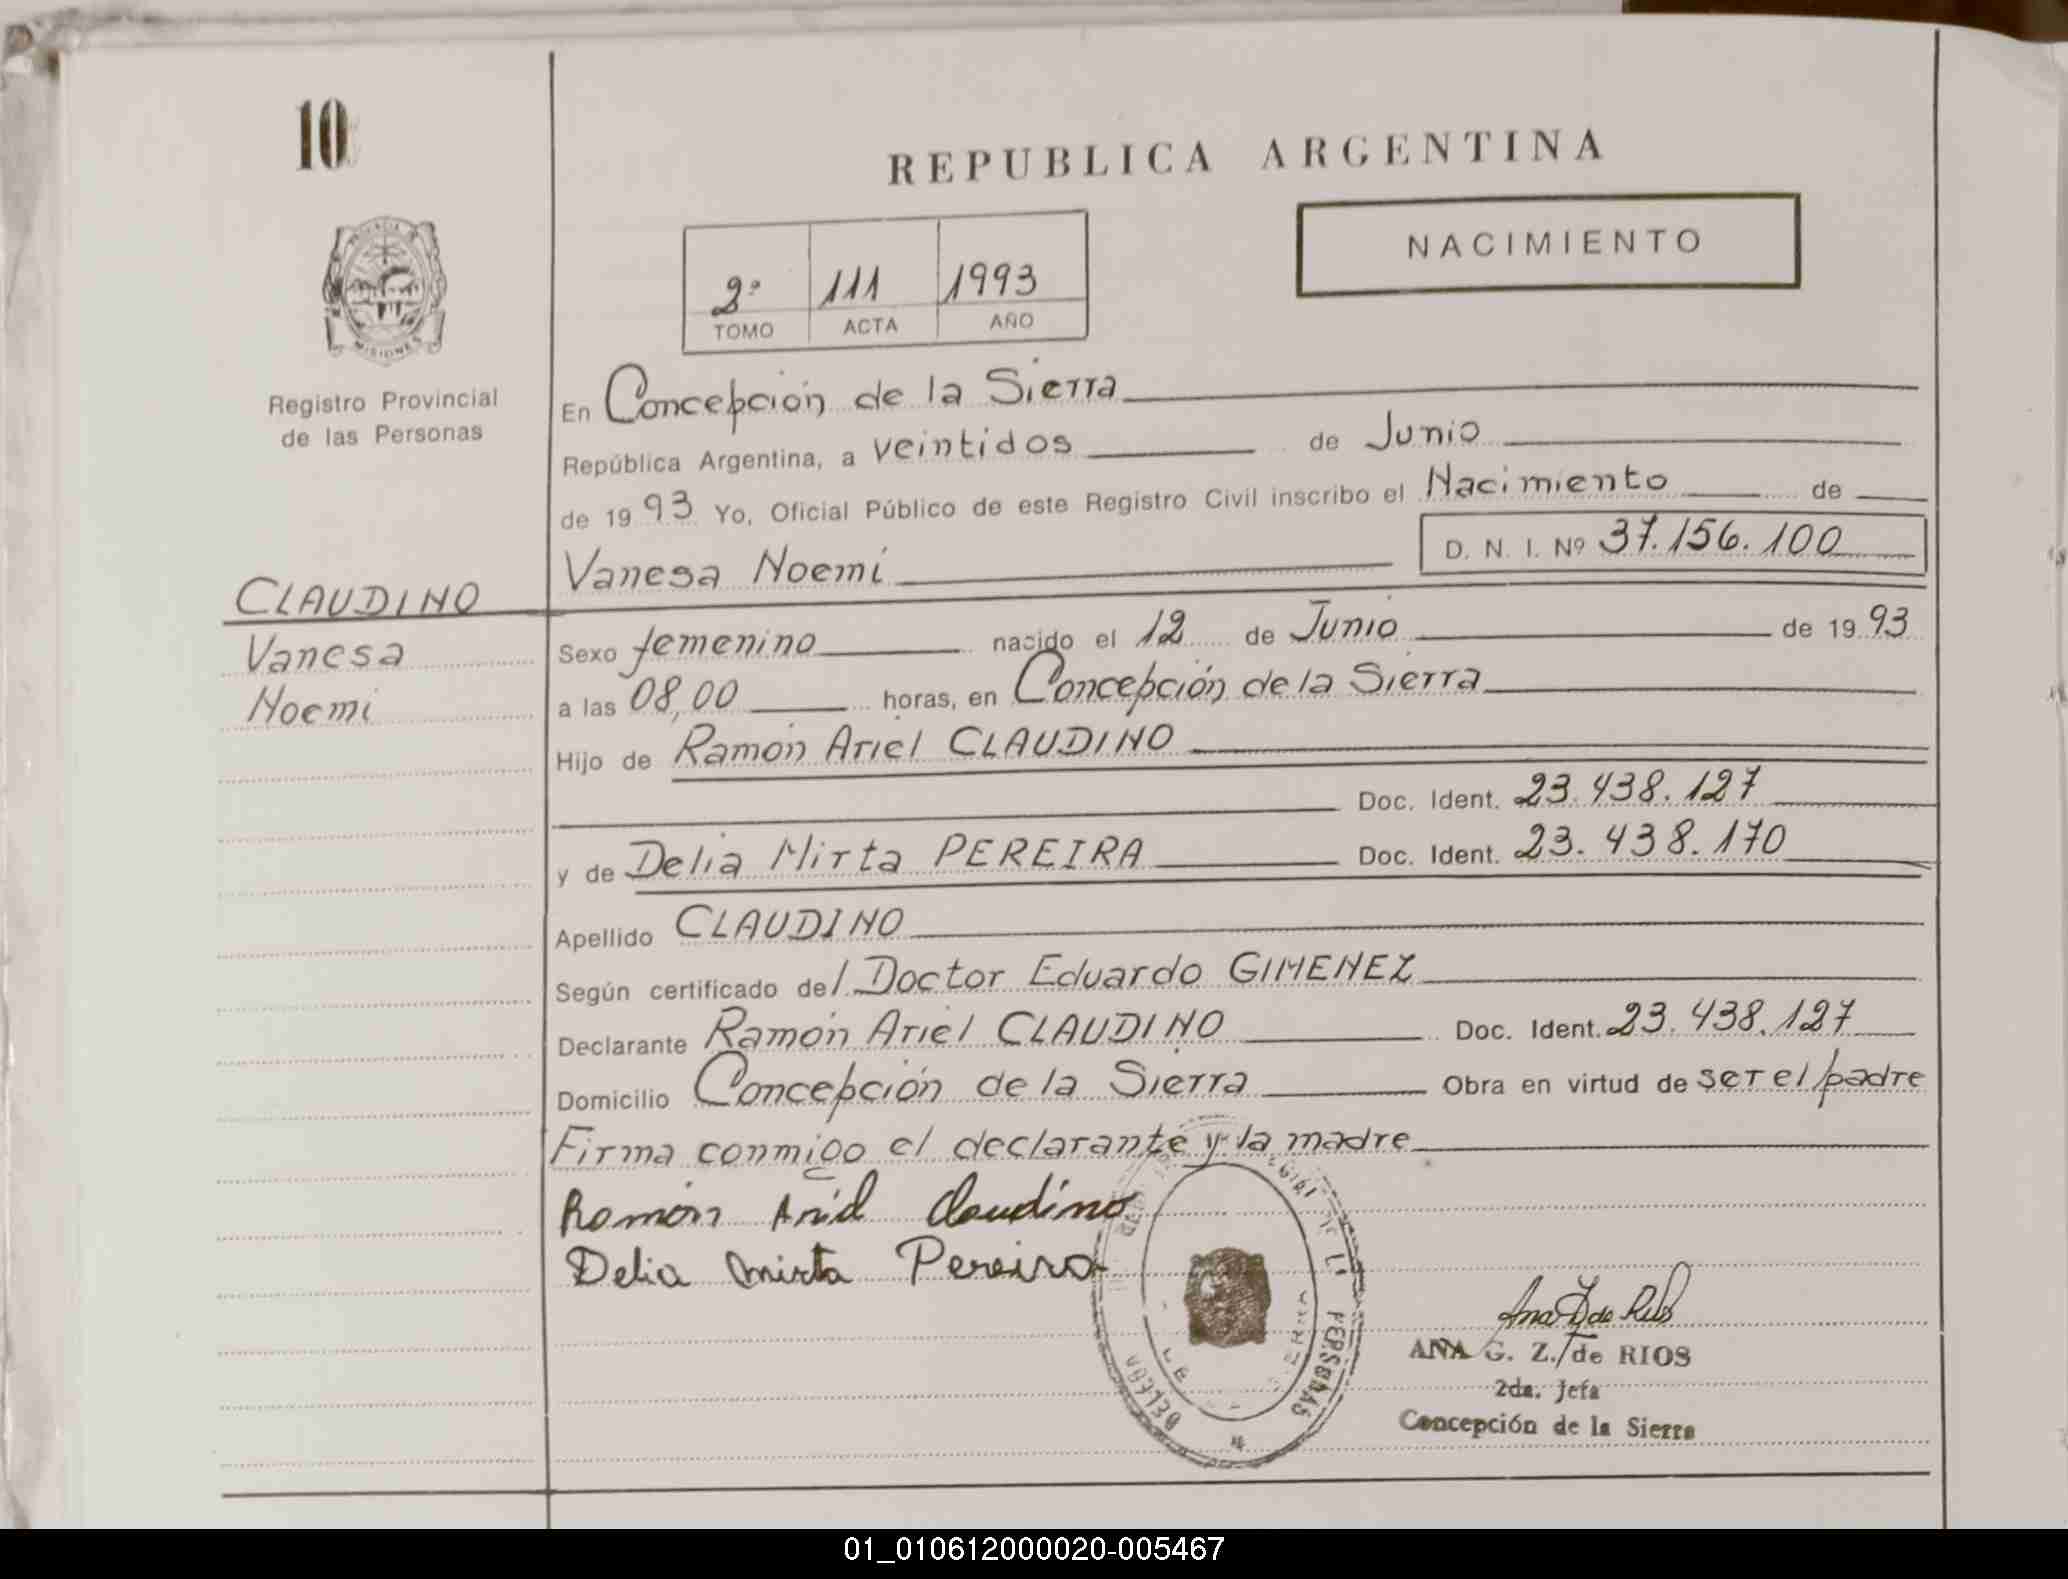 10
REPUBLICA ARGENTINA
NACIMIENTO
2º 111 1993
TOMO ACTA AÑO
PROVINCIA DE
MISIONES
Registro Provincial
de las Personas
En Concepción de la Sierra
República Argentina, a veintidos de Junio
de 1993 Yo, Oficial Público de este Registro Civil inscribo el Nacimiento de
Vanesa Noemi D. N. I. Nº 37.156.100
CLAUDINO
Vanesa
Noemi
Sexo femenino nacido el 12 de Junio de 1993
a las 08,00 horas, en Concepción de la Sierra
Hijo de Ramón Ariel CLAUDINO
Doc. Ident. 23.438.127
y de Delia Mirta PEREIRA Doc. Ident. 23.438.170
Apellido CLAUDINO
Según certificado del Doctor Eduardo GIMENEZ
Declarante Ramón Ariel CLAUDINO Doc. Ident. 23.438.127
Domicilio Concepción de la Sierra Obra en virtud de ser el padre
Firma conmigo el declarante y la madre
Ramón Ariel Claudino
Delia Mirta Pereira
PERSONAS
Ana Z de Rios
ANA G. Z. de RIOS
2da. Jefa
Concepción de la Sierra
01_010612000020-005467